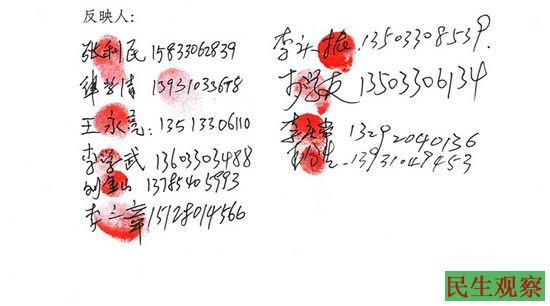 反映人：
张利民 15833062839
13931033678
王永亮：13513306110
李学武 13603303488
刘金山 13785405993
李三章 15128014566
13503308539.
李学友 13503306134
13292040136
13931049453
民生观察